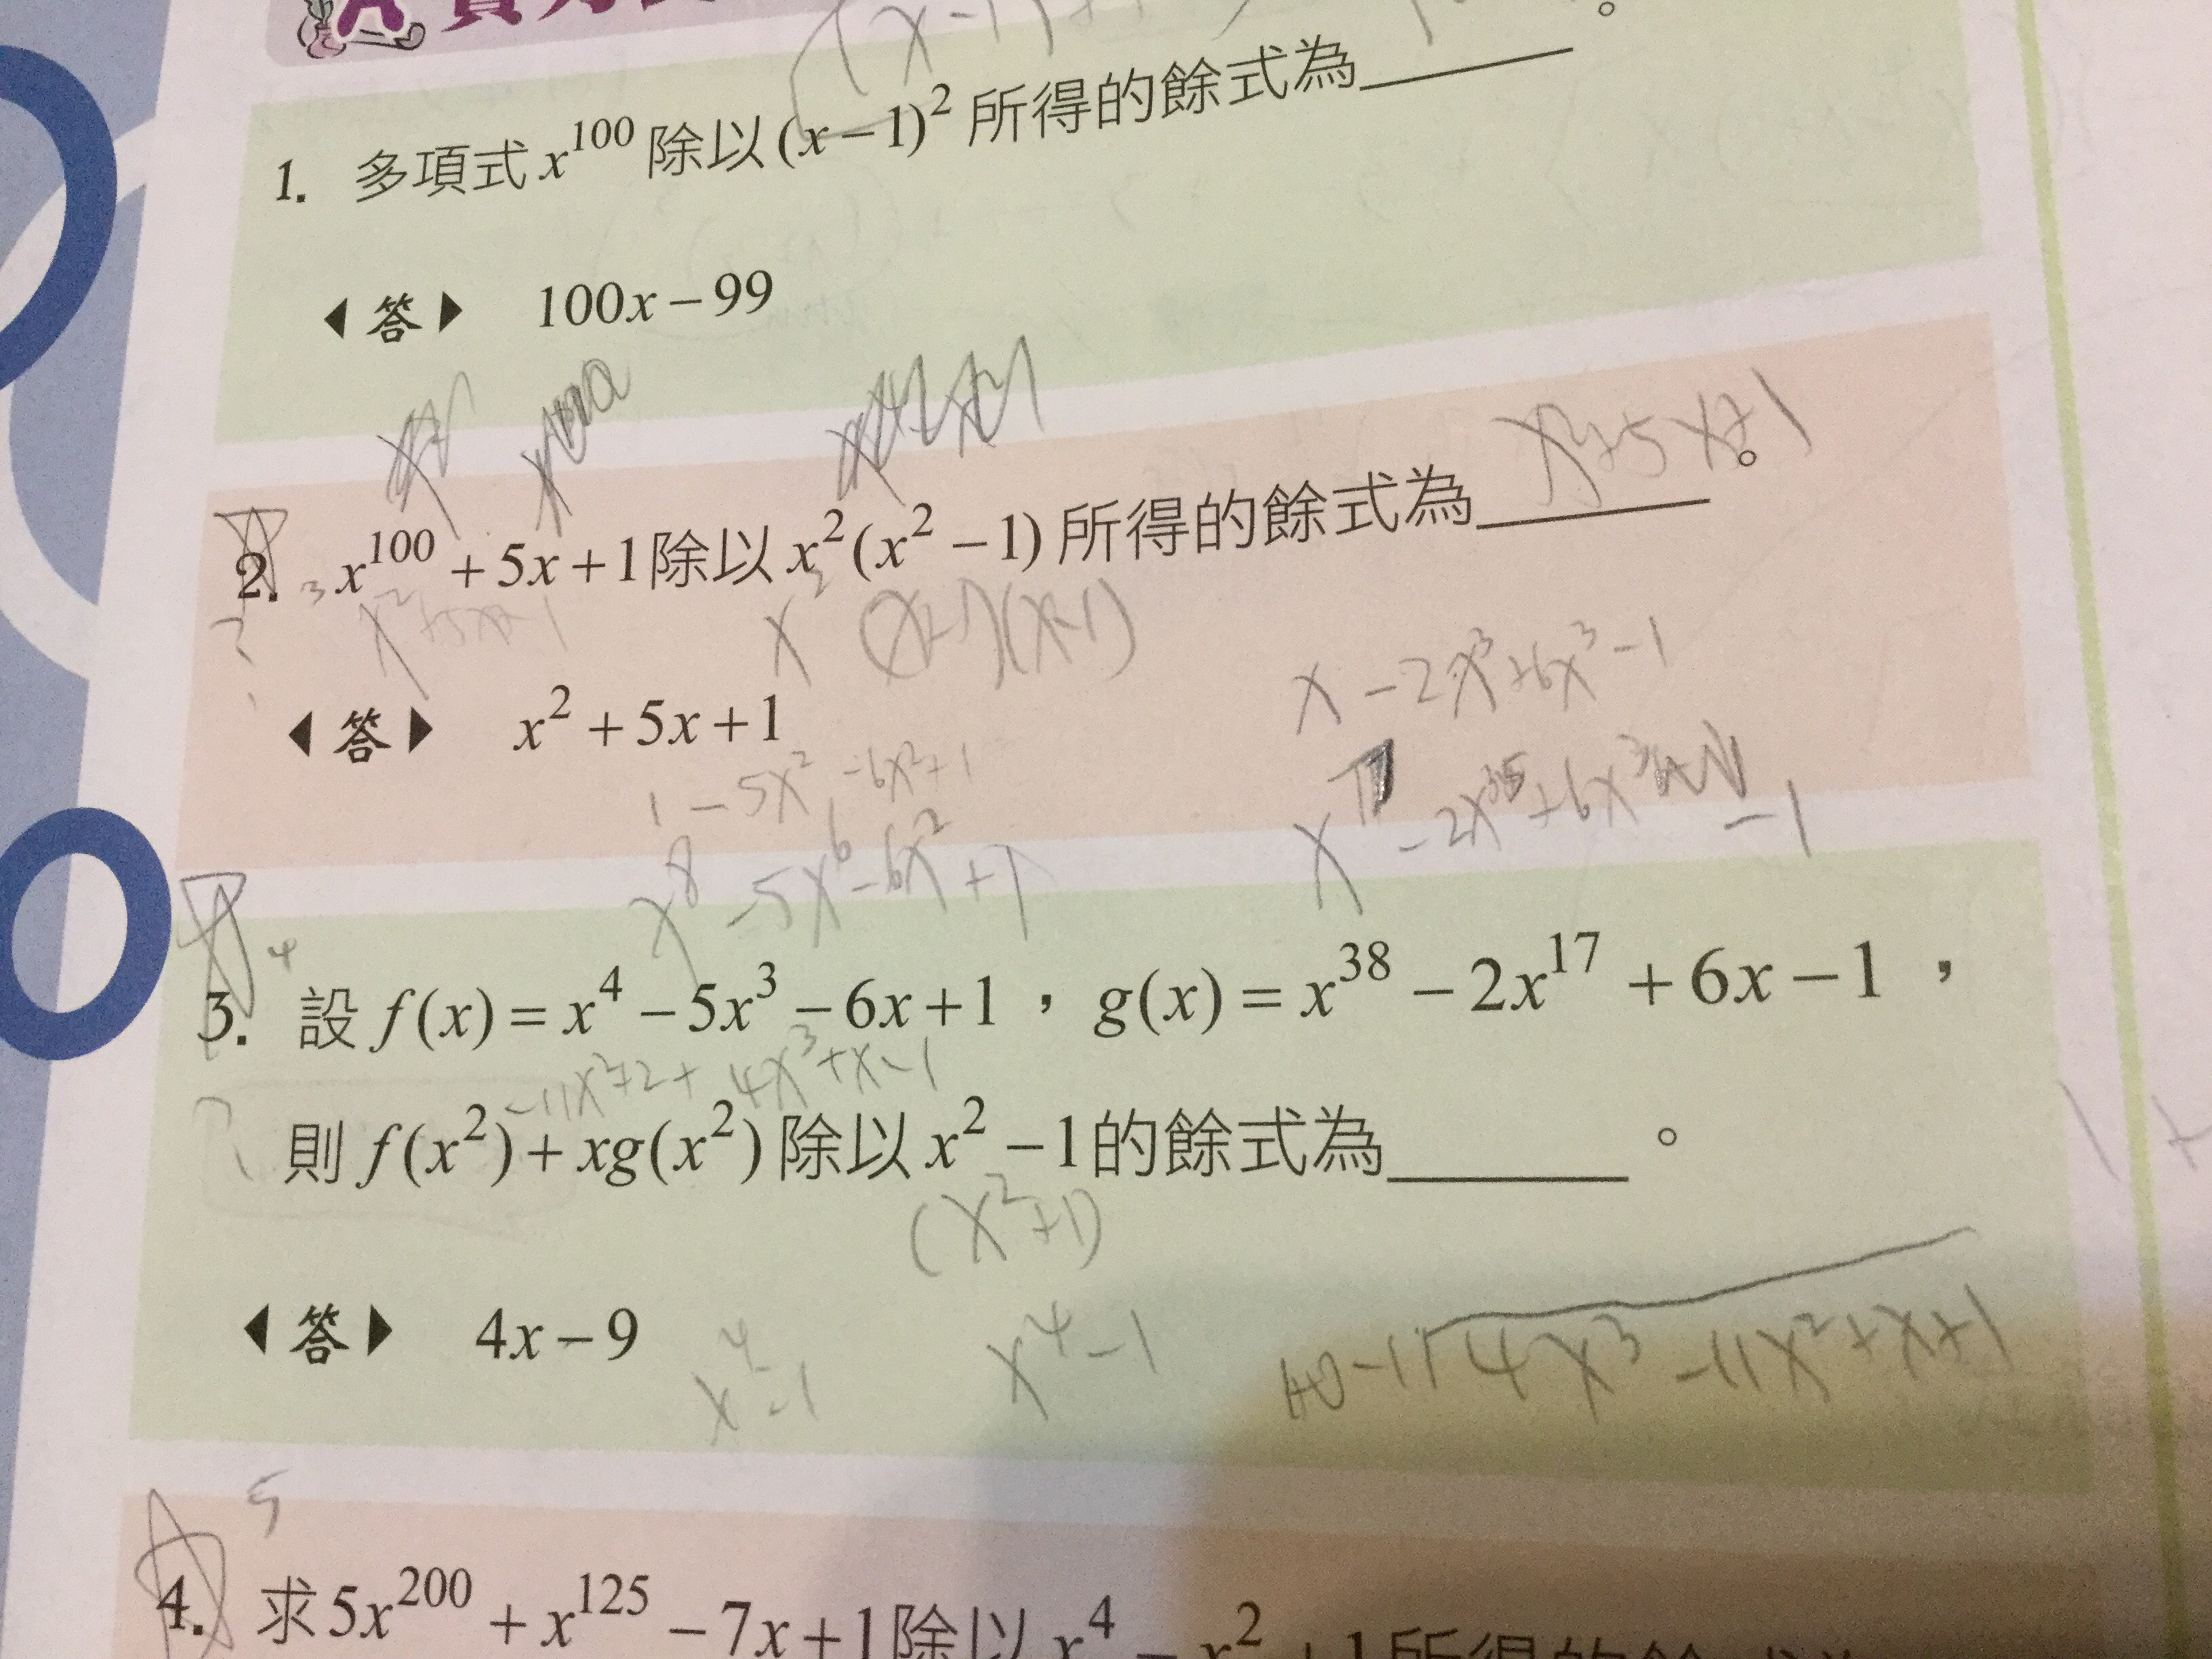 (x-1)
1. 多項式 x^100 除以 (x-1)^2 所得的餘式為______。
◀答▶ 100x-99
x^2+5x+1
2. x^100+5x+1除以 x^2(x^2-1) 所得的餘式為______。
3
x^2+5x+1 x^2 (x+1)(x-1)
x-2x^3+6x^3-1
◀答▶ x^2+5x+1
1-5x^2-6x^2+1
x^8-5x^6-6x^2+1
-1
4
3. 設 f(x)=x^4-5x^3-6x+1,g(x)=x^38-2x^17+6x-1,
-11x^2+2+4x^3+x-1
則 f(x^2)+xg(x^2) 除以 x^2-1的餘式為______。
(x^2+1)
◀答▶ 4x-9
x^4-1 x^4-1 4x^3-11x^2+x+1
5
4. 求5x^200+x^125-7x+1除以 x^4-x^2+1所得的餘式為